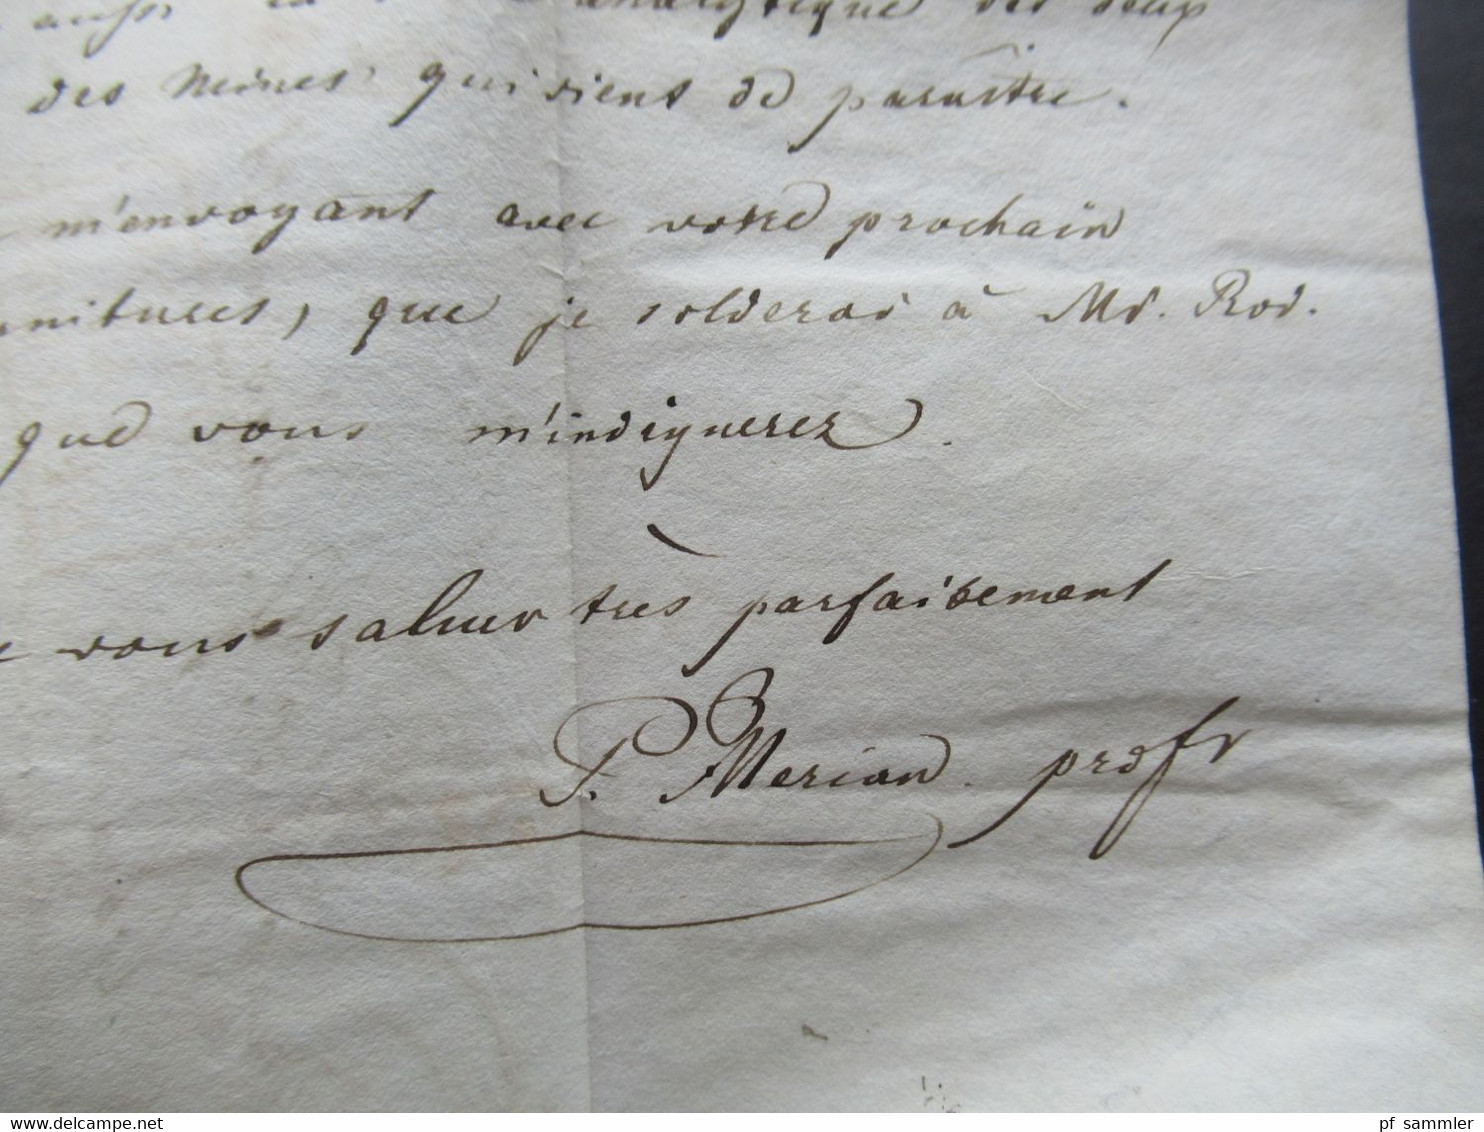 aussi la analytique des deux
des Mines, qui vient de paraître.
m'envoyant avec votre prochain
nitures, que je solderai à Mr. Rod.
que vous m'indiquerez.
vous saluer très parfaitement
P. Merian. profr
delcampe.net
pf_sammler